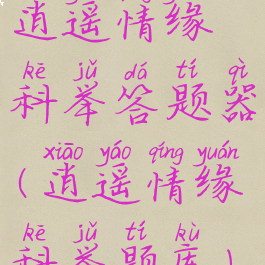 逍遥情缘
kē jǔ dá tí qì
科举答题器
xiāo yáo qíng yuán
(逍遥情缘
kē jǔ tí kù
科举题库)